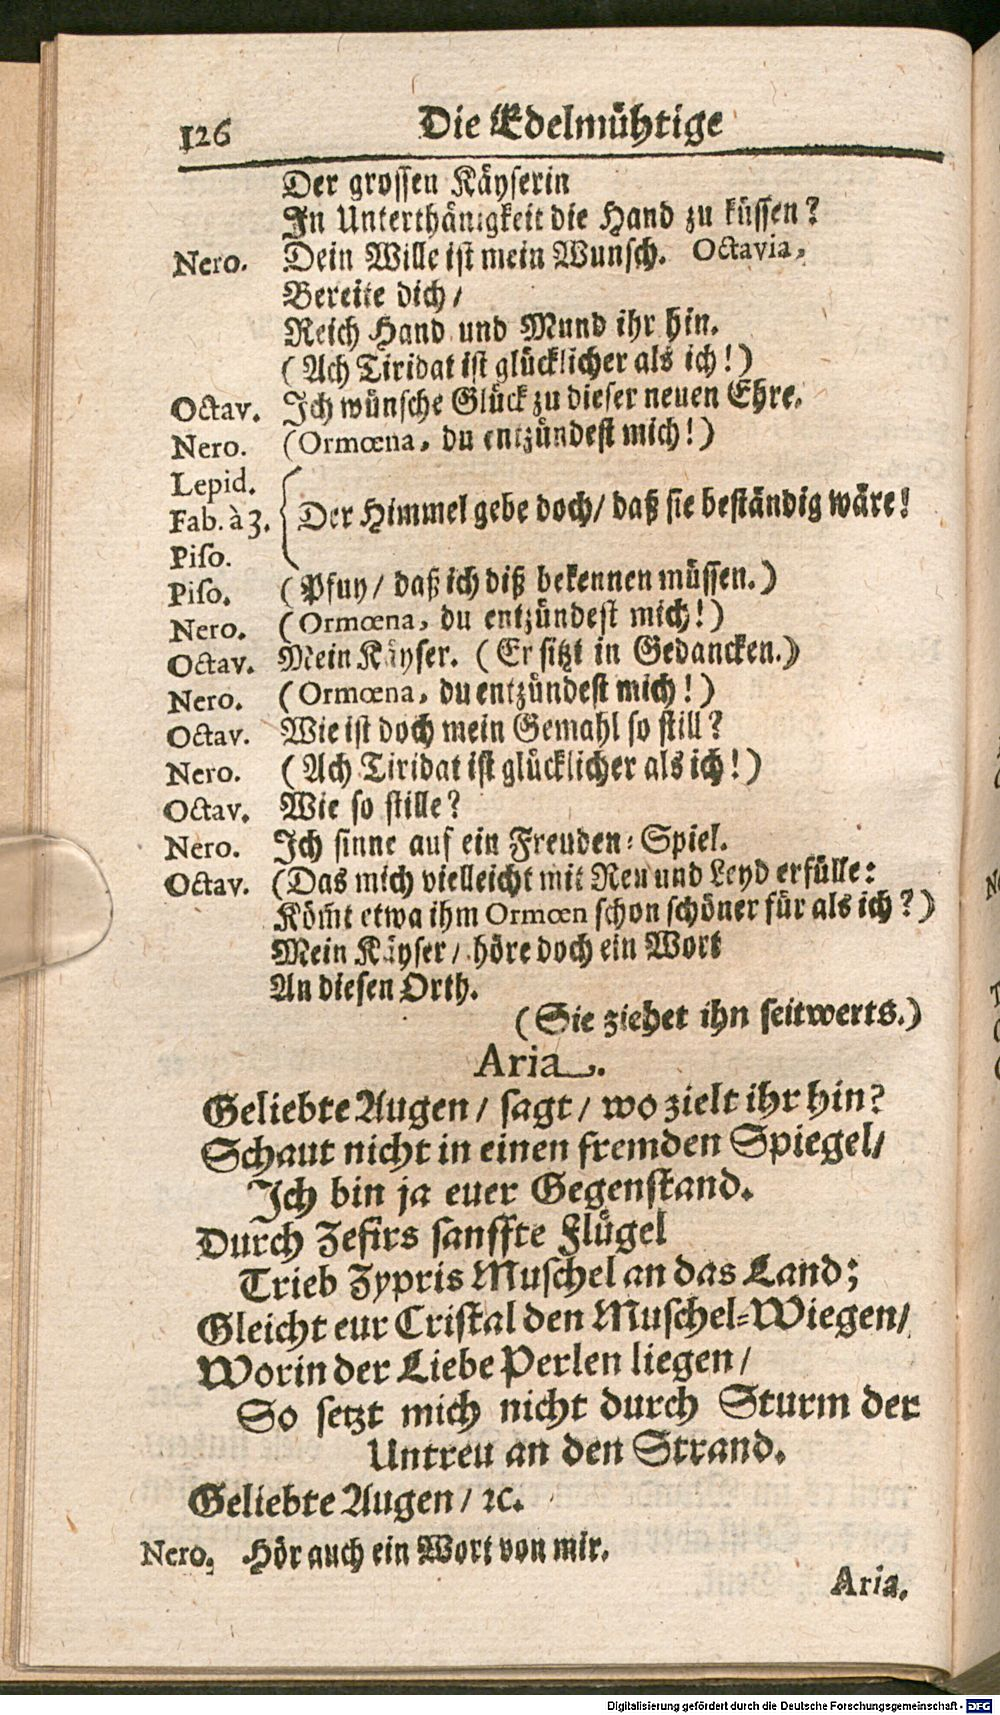 126 Die Edelmühtige
Der grossen Käyserin
In Unterthänigkeit die Hand zu küssen?
Nero. Dein Wille ist mein Wunsch. Octavia,
Bereite dich/
Reich Hand und Mund ihr hin.
(Ach Tiridat ist glücklicher als ich!)
Octav. Ich wünsche Glück zu dieser neuen Ehre.
Nero. (Ormœna, du entzündest mich!)
Lepid.
Fab. à 3. Der Himmel gebe doch/ daß sie beständig wäre!
Piso.
Piso. (Pfuy/ daß ich diß bekennen müssen.)
Nero. (Ormœna, du entzündest mich!)
Octav. Mein Käyser. (Er sitzt in Gedancken.)
Nero. (Ormœna, du entzündest mich!)
Octav. Wie ist doch mein Gemahl so still?
Nero. (Ach Tiridat ist glücklicher als ich!)
Octav. Wie so stille?
Nero. Ich sinne auf ein Freuden-Spiel.
Octav. (Das mich vielleicht mit Reu und Leyd erfülle:
Köm̃t etwa ihm Ormœn schon schöner für als ich?)
Mein Käyser/ höre doch ein Wort
An diesen Orth.
(Sie ziehet ihn seitwerts.)
Aria.
Geliebte Augen/ sagt/ wo zielt ihr hin?
Schaut nicht in einen fremden Spiegel/
Ich bin ja euer Gegenstand.
Durch Zefirs sanffte Flügel
Trieb Zypris Muschel an das Land;
Gleicht eur Cristal den Muschel-Wiegen/
Worin der Liebe Perlen liegen/
So setzt mich nicht durch Sturm der
Untreu an den Strand.
Geliebte Augen/ ꝛc.
Nero. Hör auch ein Wort von mir.
Aria.
Digitalisierung gefördert durch die Deutsche Forschungsgemeinschaft - DFG